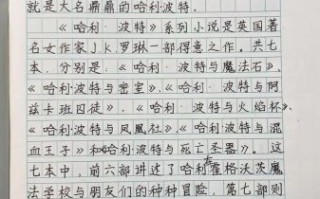 就是大名鼎鼎的哈利·波特。
《哈利·波特》系列小说是英国著
名女作家J.K.罗琳一部得意之作。共七
本，分别是，《哈利·波特与魔法石》、
《哈利·波特与密室》、《哈利·波特与阿
兹卡班囚徒》、《哈利·波特与火焰杯》、
《哈利·波特与凤凰社》、《哈利·波特与混
血王子》和《哈利·波特与死亡圣器》。这
七本中，前六部讲述了哈利在霍格沃茨魔
法学校与朋友们的种种冒险，第七部则